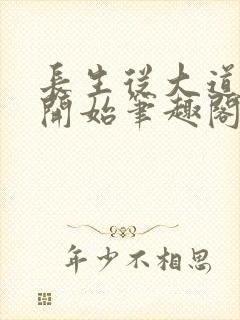 長生從大道
開始筆趣閣
年少不相思